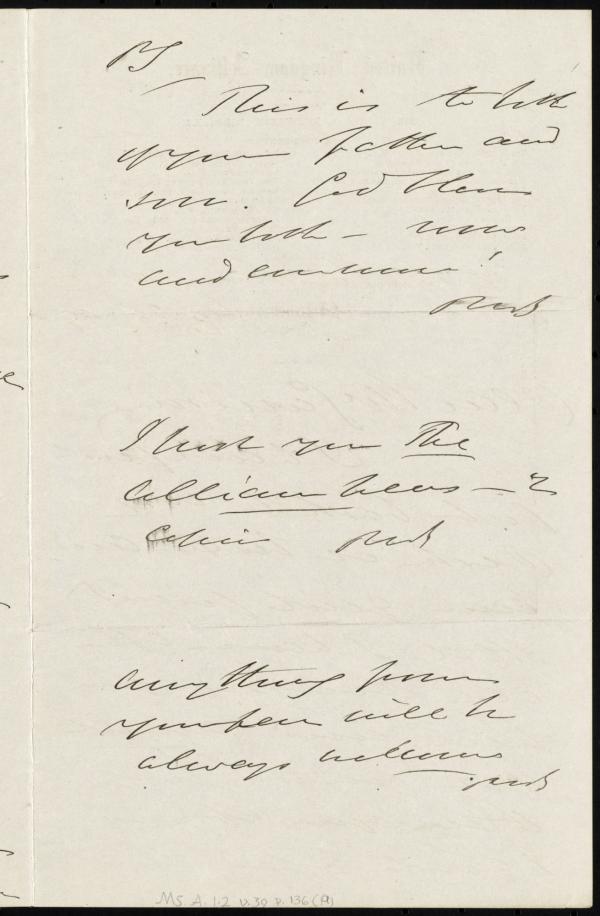 PS
This is to both
of you father and
son. God bless
you both – now
and ever more!
I send you The
Alliance News – 2
copies
anything from
your pen will be
always welcome
MS. A. 1.2 v. 39 p. 136 (A)